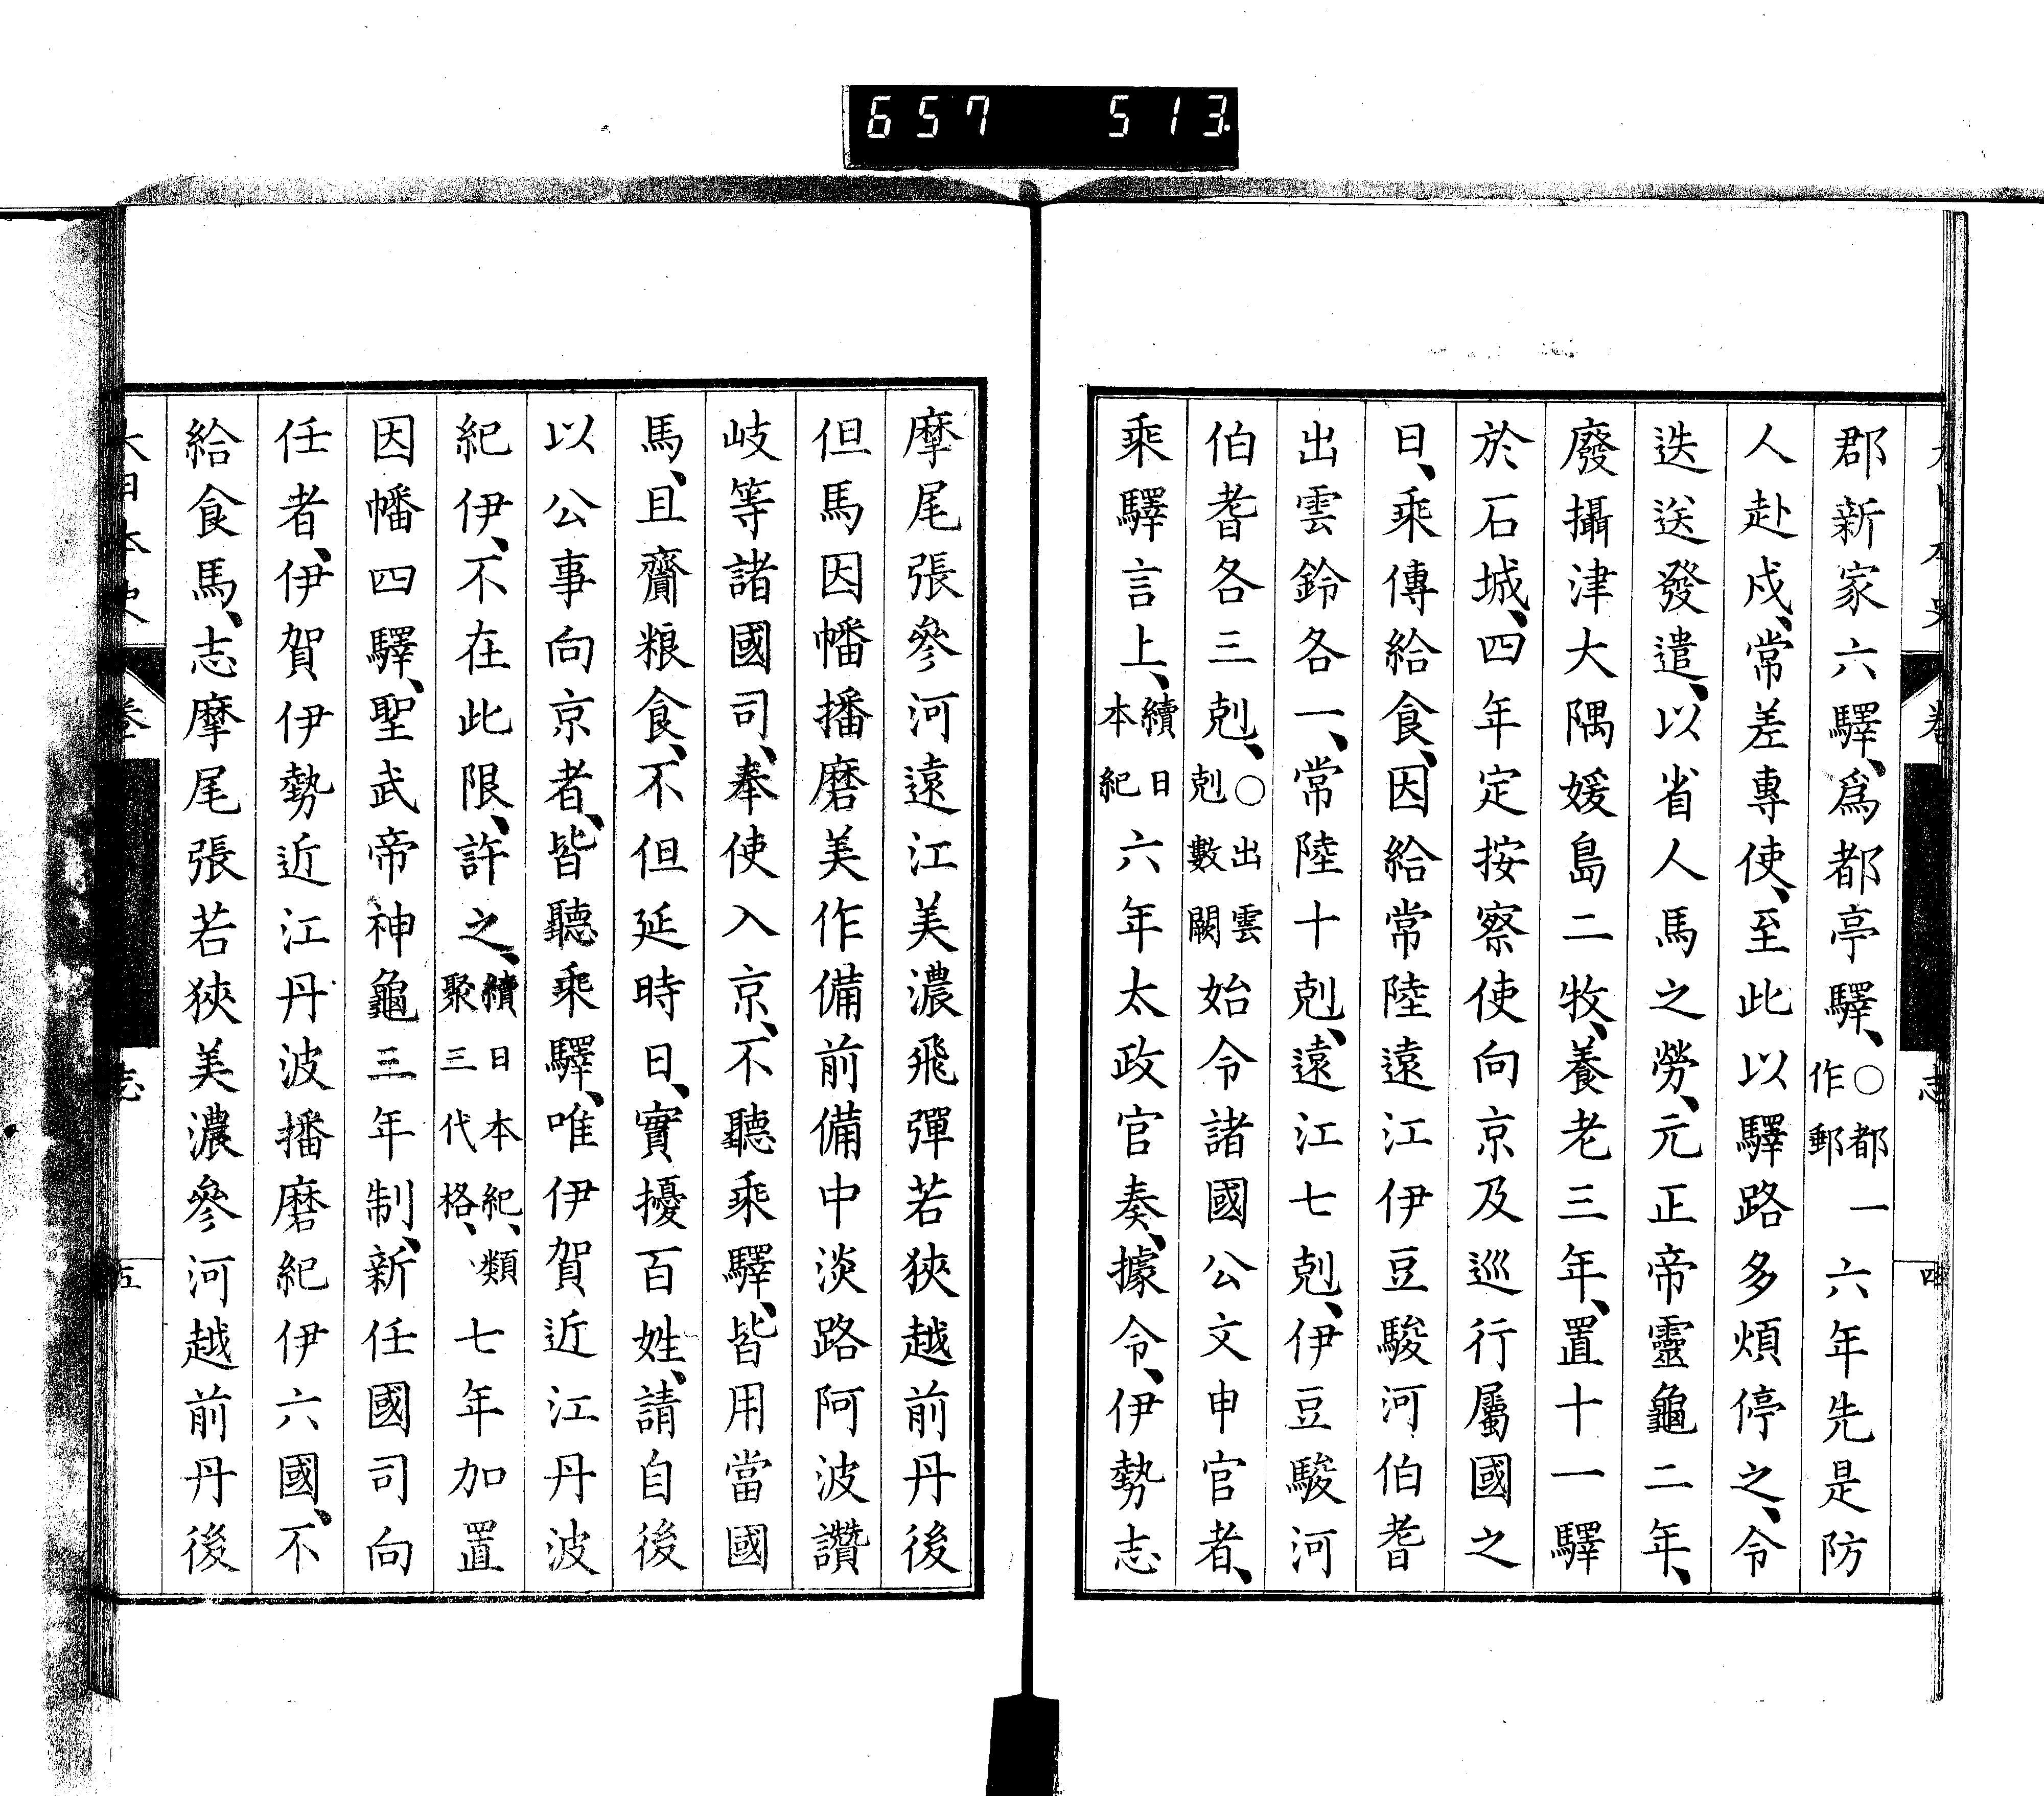 657 513
郡新家六驛、爲都亭驛、○都一作郵六年先是防
人赴戍、常差專使、至此以驛路多煩停之、令
迭送發遣、以省人馬之勞、元正帝靈龜二年、
廢攝津大隅媛島二牧、養老三年、置十一驛
於石城、四年定按察使向京及巡行屬國之
日、乘傳給食、因給常陸遠江伊豆駿河伯耆
出雲鈴各一、常陸十剋、遠江七剋、伊豆駿河
伯耆各三剋、○出雲剋數闕始令諸國公文申官者、
乘驛言上、續日本紀六年太政官奏、據令、伊勢志
摩尾張參河遠江美濃飛彈若狹越前丹後
但馬因幡播磨美作備前備中淡路阿波讚
岐等諸國司、奉使入京、不聽乘驛、皆用當國
馬、且齎粮食、不但延時日、實擾百姓、請自後
以公事向京者、皆聽乘驛、唯伊賀近江丹波
紀伊、不在此限、許之、續日本紀、類聚三代格、七年加置
因幡四驛、聖武帝神龜三年制、新任國司向
任者、伊賀伊勢近江丹波播磨紀伊六國、不
給食馬、志摩尾張若狹美濃參河越前丹後
大日本史 卷 志 五